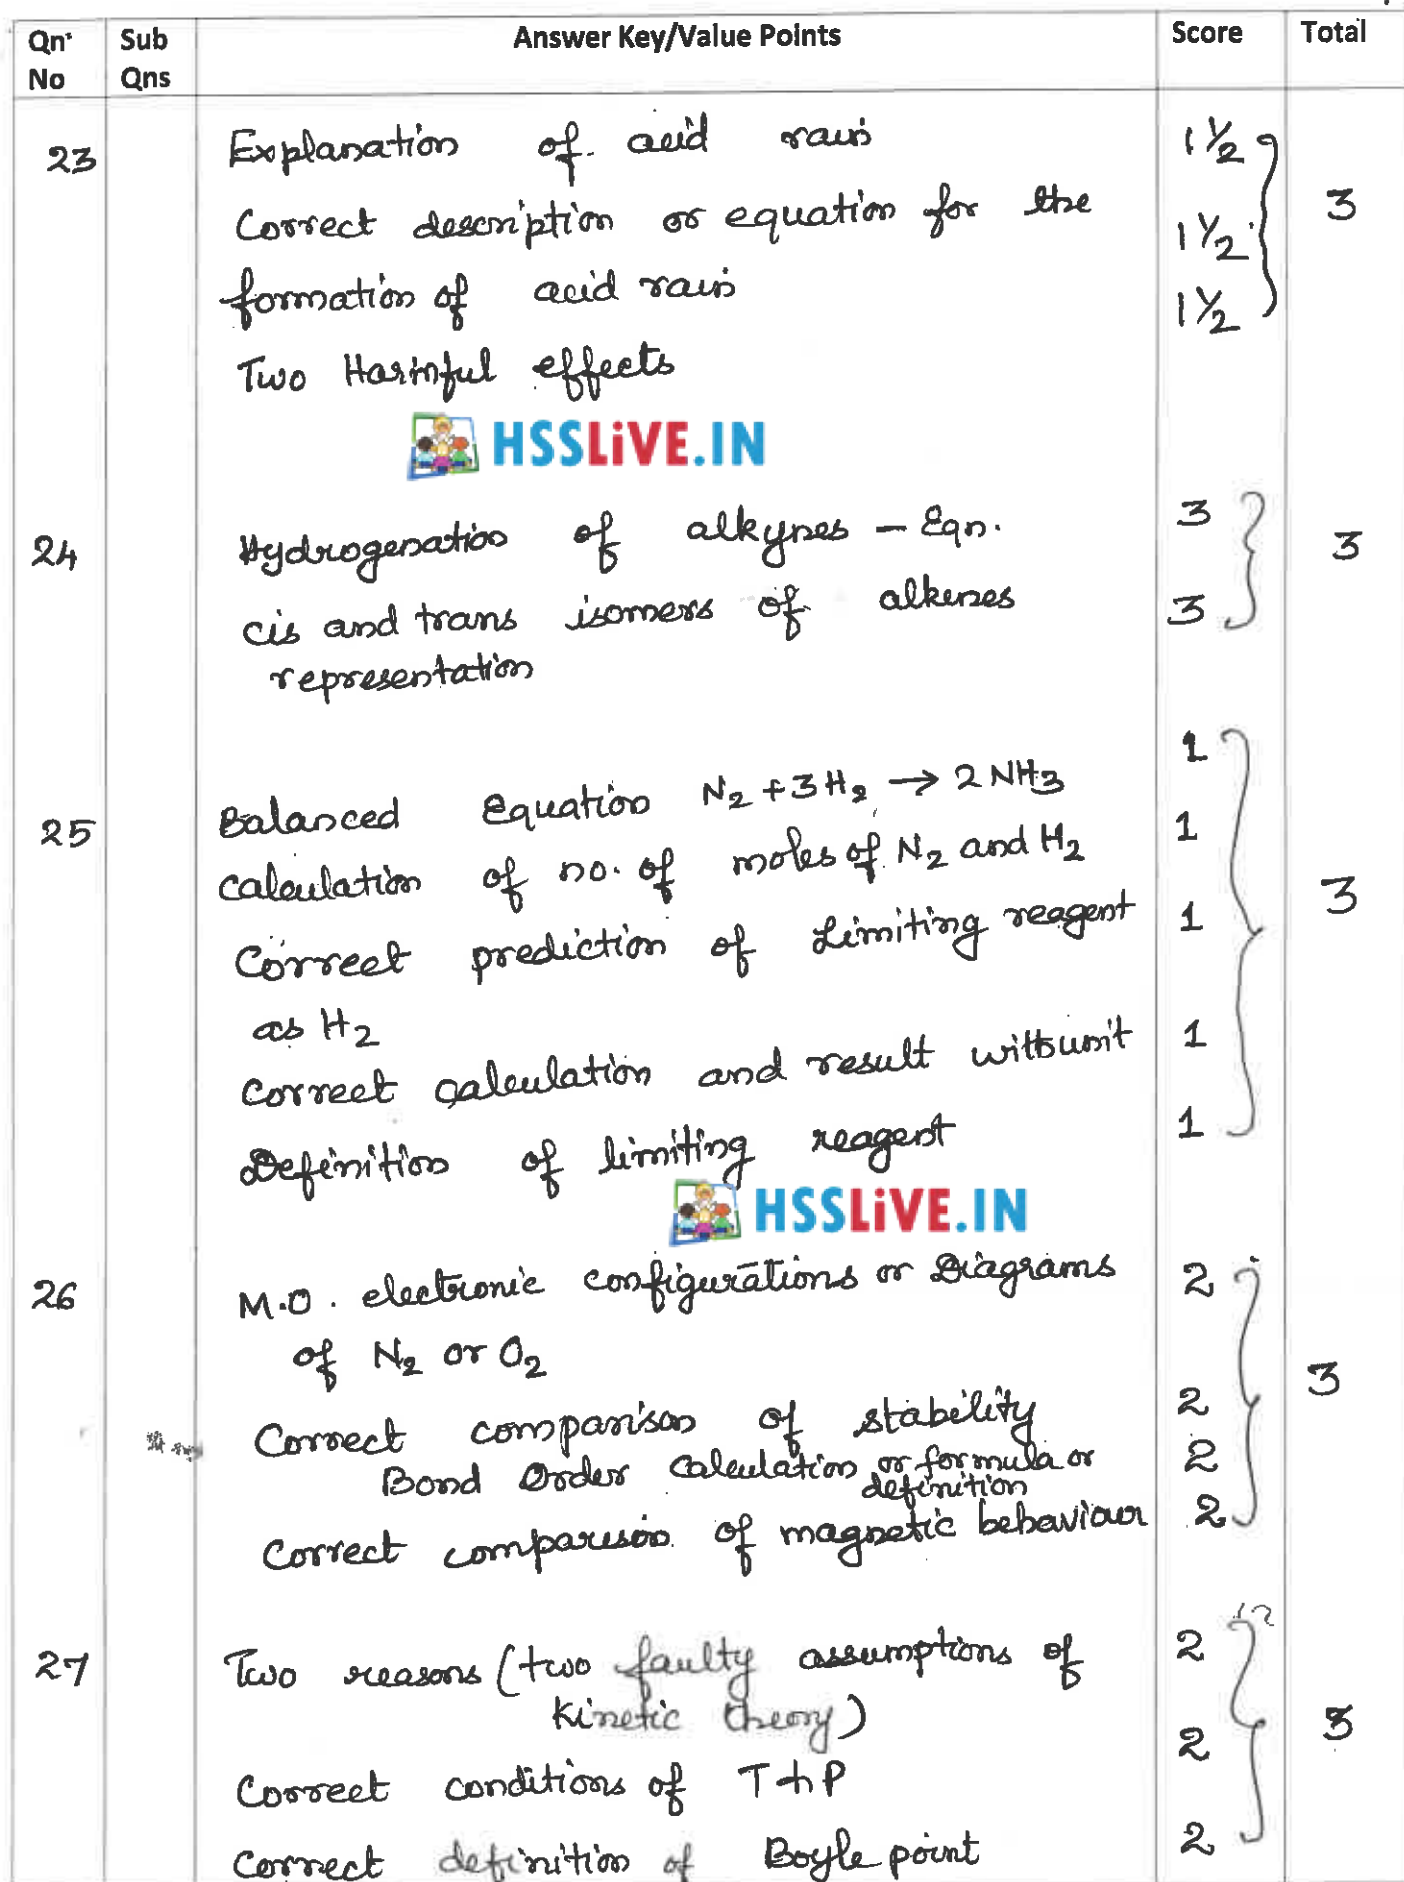 Qn· Sub Answer Key/Value Points Score Total
No Qns
23 Explanation of acid rain 1½
Correct description or equation for the 1½ 3
formation of acid rain 1½
Two Harmful effects
HSSLiVE.IN
24 Hydrogenation of alkynes – Eqn. 3 3
cis and trans isomers of alkenes 3
representation
25 Balanced Equation N₂ + 3H₂ → 2NH₃ 1
Calculation of no. of moles of N₂ and H₂ 1 3
Correct prediction of Limiting reagent 1
as H₂
Correct calculation and result with unit 1
Definition of limiting reagent 1
HSSLiVE.IN
26 M.O. electronic configurations or Diagrams 2
of N₂ or O₂ 3
Correct comparison of stability 2
Bond Order calculation or formula or 2
definition
Correct comparison of magnetic behaviour 2
27 Two reasons (two faulty assumptions of 2
Kinetic theory) 3
Correct conditions of T & P 2
Correct definition of Boyle point 2